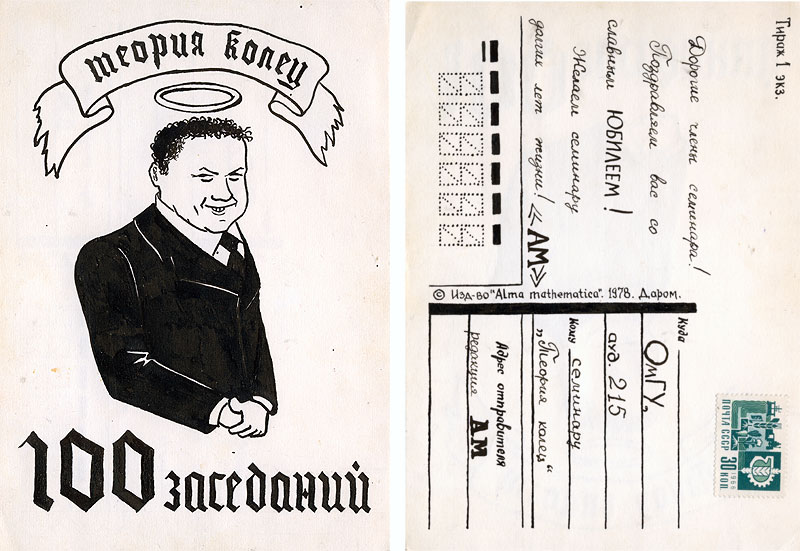 теория колец
100 заседаний
Тираж 1 экз.
Дорогие члены семинара!
Поздравляем вас со
славным ЮБИЛЕЕМ!
Желаем семинару
долгих лет жизни!
«АМ»
© Изд-во "Alma mathematica". 1978. Даром.
Куда
ОмГУ,
ауд. 215
Кому семинару
„Теория колец“
Адрес отправителя
редакция АМ
ПОЧТА СССР
1966
30 КОП.